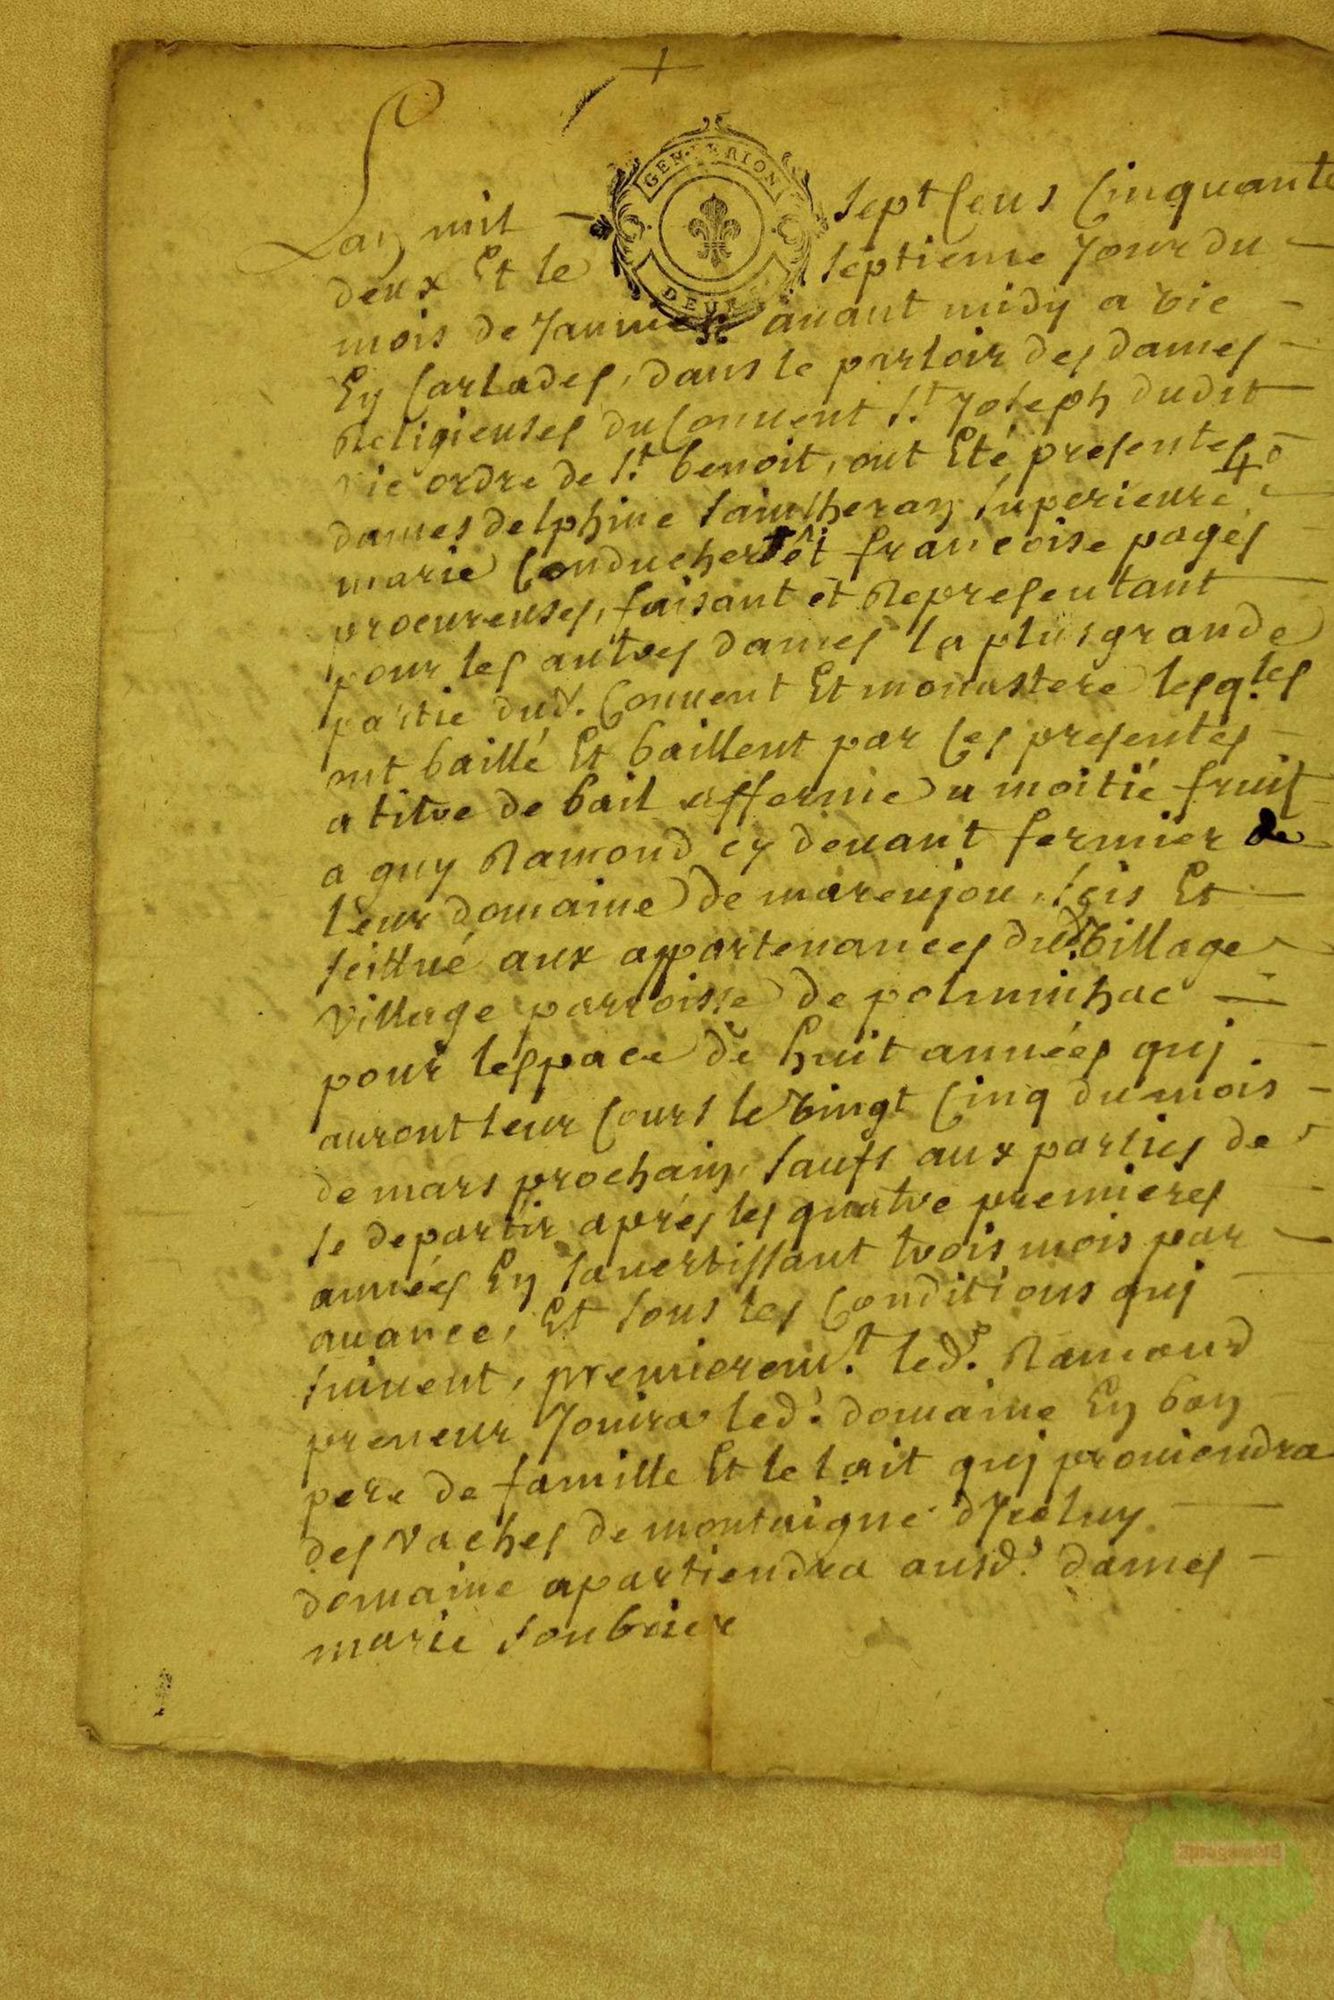 GEN. DE RION
DEUX S.
Lan mil sept Cens Cinquante
deux Et le septieme Jour du
mois de Januier auant midy a vic
En Carlades, dans le parloir des dames
Religieuses du Conuent St. Joseph dudit
vic ordre de St. benoit, ont Eté presentes
dames delphine Saintheran superieure
marie Conducher et francoise pages
procureuses, faisant et Representant
pour les autres dames la plus grande
partie dud. Conuent Et monastere lesq.les
ont baillé Et baillent par Ces presentes
a titre de bail afferme a moitié fruit
a guy Ramond cy deuant fermier de
leur domaine de marenjou, sis Et
scittué aux appartenances dud. village
village parroisse de polminhac
pour lespace de huit années quj
auront leur Cours le vingt Cinq du mois
de mars prochain, saufs aux parties de
se departir aprés les quatre premieres
années En sauertissant trois mois par
auance, Et sous les Conditions quj
suiuent, premierem.t led. Ramond
preneur Jouira led. domaine En bon
pere de famille Et le lait quj prouiendra
des vaches de montaigne dJceluy
domaine apartiendra ausd. dames
marie soubrier